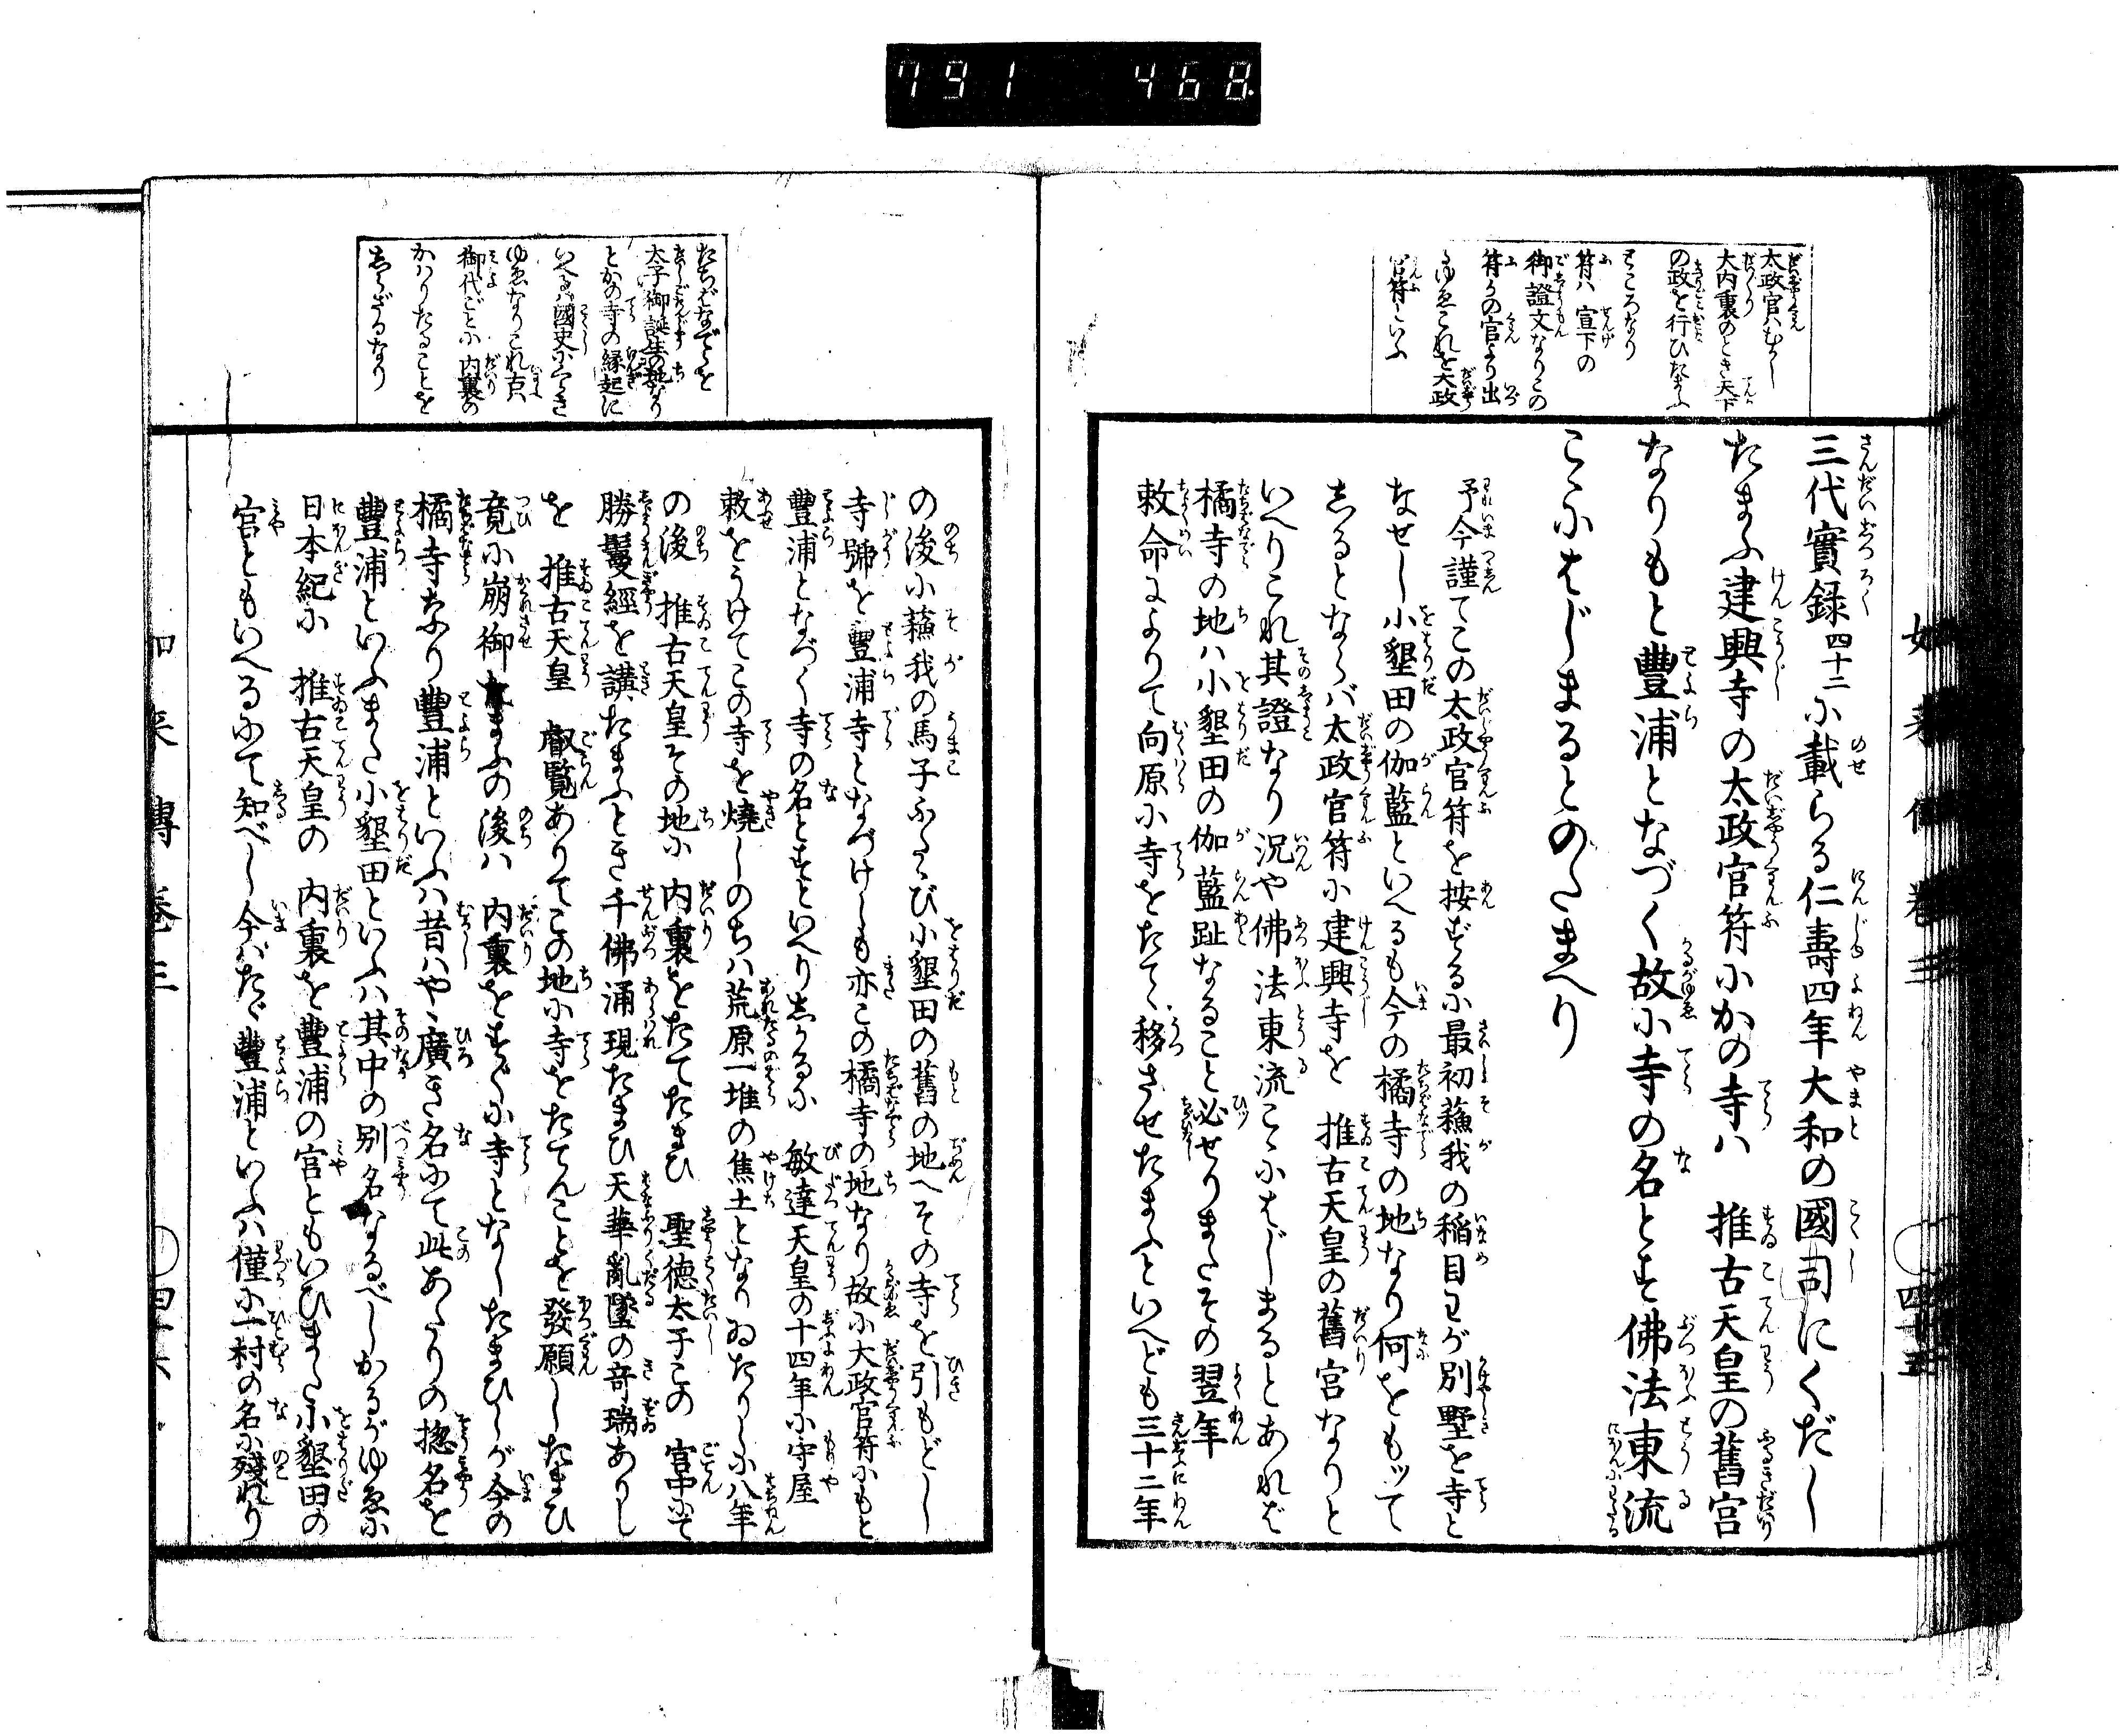 791 468
太政官ハむかし
大内裏のとき天下
の政を行ひたまふ
ところなり
符ハ宣下の
御證文なりこの
符かの官より出
るゆゑこれを大政
官符といふ
三代實録四十二に載らる仁壽四年大和の國司にくだし
たまふ建興寺の太政官符にかの寺ハ 推古天皇の舊宮
なりもと豐浦となづく故に寺の名とす佛法東流
こゝにはじまるとのたまへり
予今謹てこの太政官符を按ずるに最初蘓我の稲目わが別墅を寺と
なせし小墾田の伽藍といへるも今の橘寺の地なり何をもッて
しるとならバ太政官符に建興寺を 推古天皇の舊宮なりと
いへりこれ其證なり況や佛法東流こゝにはじまるとあれば
橘寺の地ハ小墾田の伽藍趾なること必せりまたその翌年
敕命によりて向原に寺をたてゝ移させたまふといへども三十二年
如来傳卷三
四十五
たちばなでらを
太子御誕生の地なり
とかの寺の縁起に
いへるハ國史にくらき
ゆゑなりこれ古ハ
御代ごとに内裏の
かハりたることを
しらざるなり
の後に蘓我の馬子ふたゝび小墾田の舊の地へその寺を引もどし
寺號を豐浦寺となづけしも亦この橘寺の地なり故に大政官符にもと
豐浦となづく寺の名とすといへりしかるに 敏達天皇の十四年に守屋
敕をうけてこの寺を燒しのちハ荒原一堆の焦土となりゐたりしに八年
の後 推古天皇その地に内裏をたてたまひ 聖徳太子この宮中にて
勝鬘經を講たまふとき千佛涌現たまひ天華亂墜の竒瑞ありし
を 推古天皇 叡覧ありてこの地に寺をたてんことを發願したまひ
竟に崩御たまふの後ハ 内裏をすぐに寺となしたまひしが今の
橘寺なり豐浦といふハ昔ハやゝ廣き名にて此あたりの揔名を
豐浦といふまた小墾田といふハ其中の別名なるべしかるがゆゑに
日本紀に 推古天皇の 内裏を豐浦の宮ともいひまた小墾田の
宮ともいへるにて知べし今ハたゞ豐浦といふハ僅に一村の名に殘れり
如来傳卷三
四十六